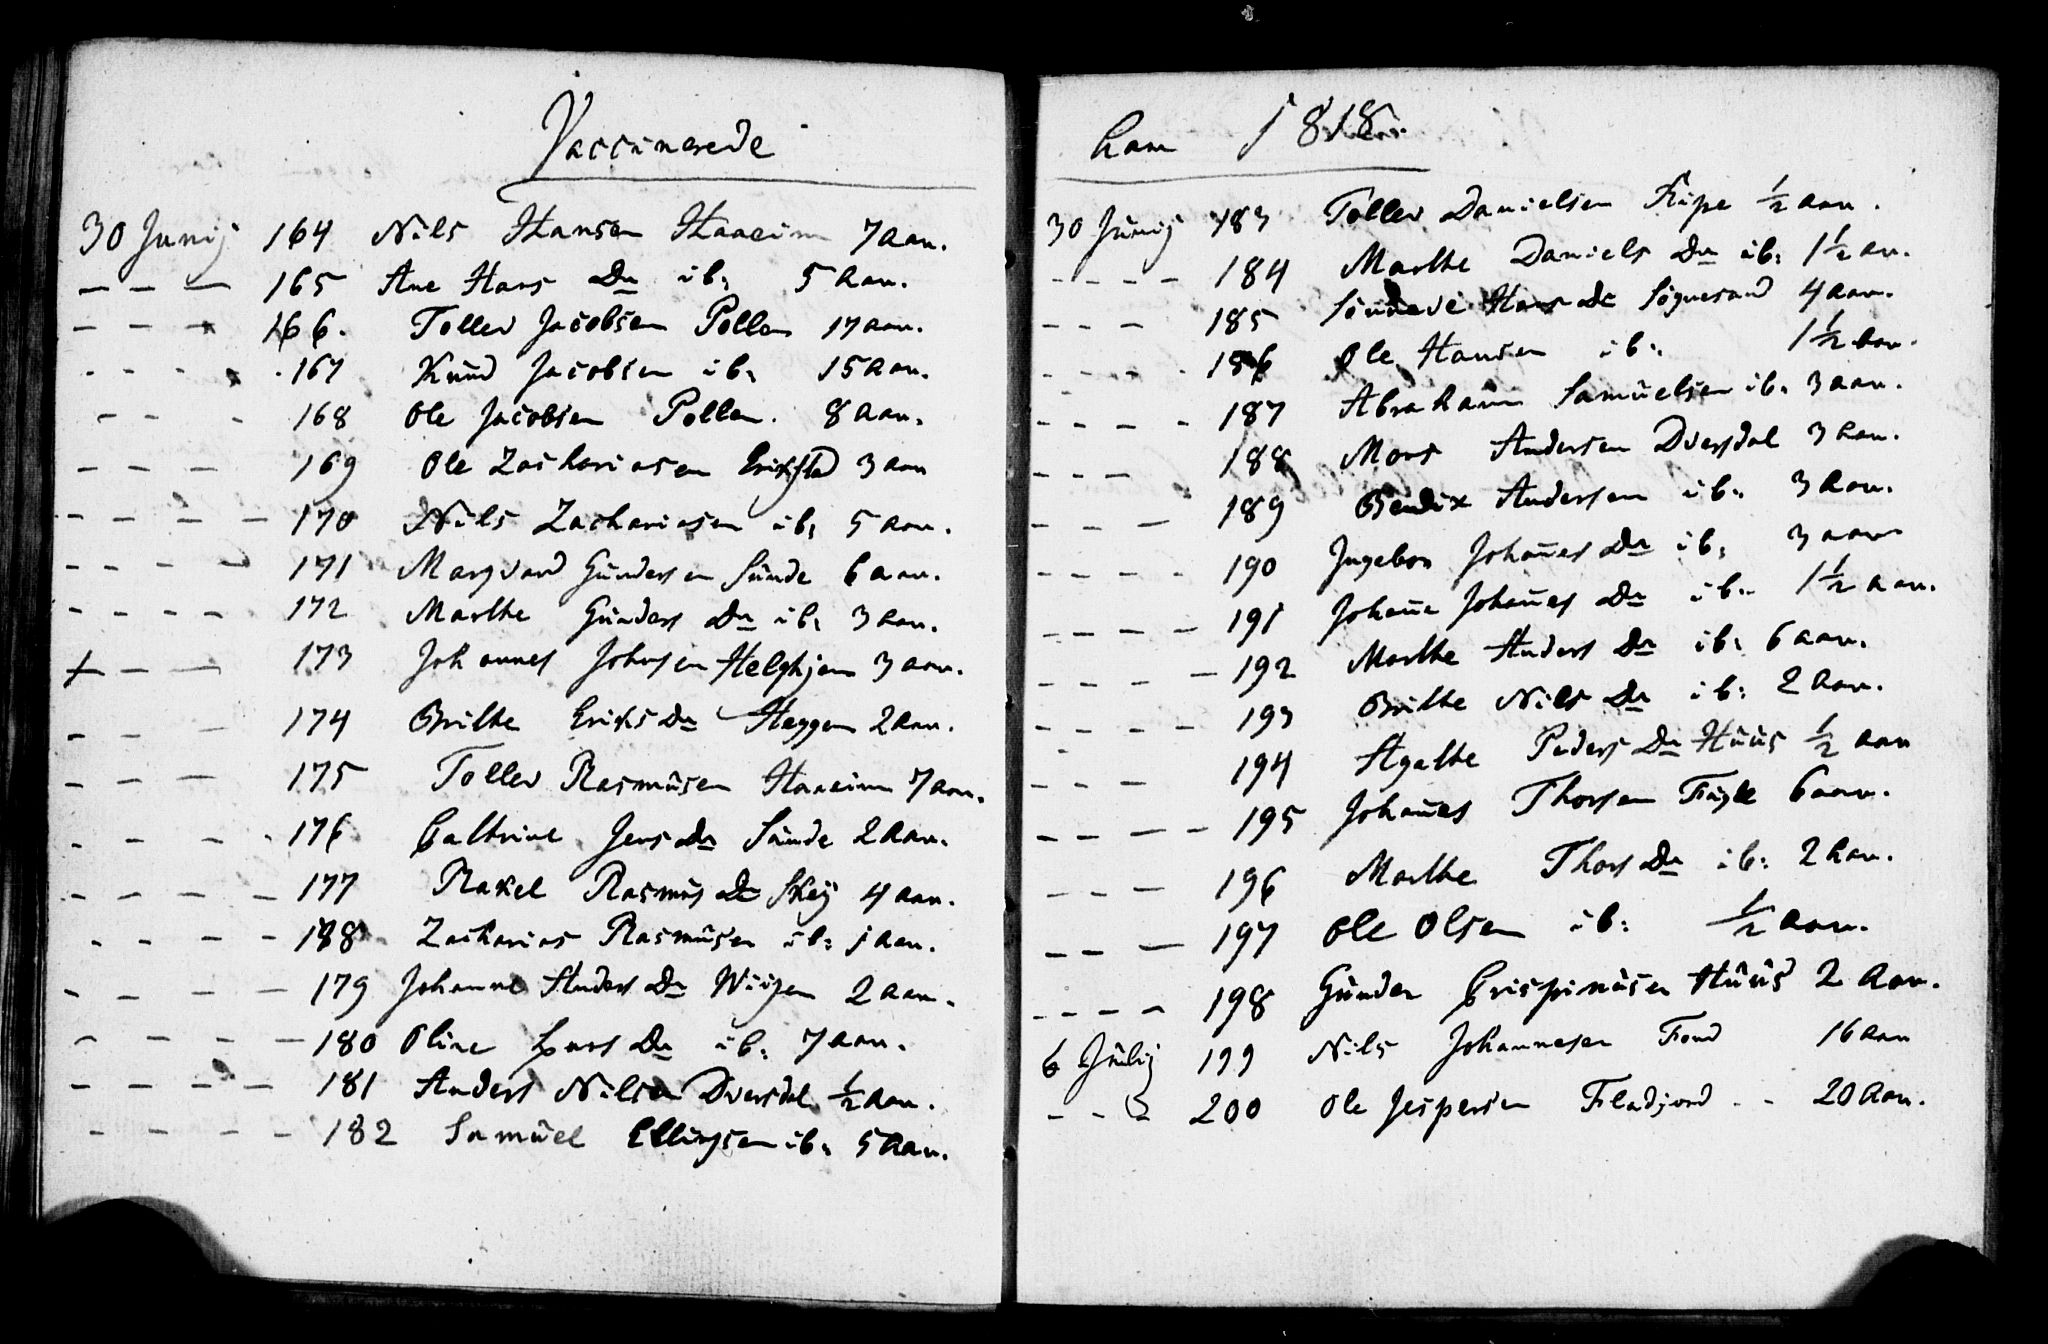 Vaccinerede
30 Junij 164 Nils Hansen Haaeim 7 aar.
— — — 165 Ane Hans Dr ib: 5 Aar.
— — — 166. Tollev Jacobsen Pollen 17 aar.
- - - - 167 Knud Jacobsen ib: 15 Aar.
- - - 168 Ole Jacobsen Pollen. 8 Aar.
— — — 169 Ole Zachariasen Erikstad 3 aar
- - - - - 170 Nils Zachariasen ib: 5 aar.
- - - - 171 Margvard Gundersen Sunde 6 aar.
- - - - 172 Marthe Gunders Dr ib: 3 Aar.
+ — — 173 Johannes Johnsen Helghjem 3 aar.
- - - 174 Brithe Eriks Dr Heggen 2 Aar.
- - - 175 Tollev Rasmüsen Haaeim 7 Aar.
- - - - 176 Cathrine Jens Dr Sünde 2 Aar.
- - - - 177 Rakel Rasmüs Dr Skej 4 aar.
- - - - 178 Zacharias Rasmüsen ib: 1 aar.
- - - - 179 Johanne Anders Dr Wiigen 2 aar.
- - - - 180 Oline Lars Dr ib: 7 aar.
- - - - 181 Anders Nilsen Dversdal ½ Aar.
- - - - 182 Samüel Ellingsen ib: 5 Aar.
1818
30 Jünij 183 Tollev Danielsen Kipe ½ aar.
- - - - 184 Marthe Daniels Dr ib: 1½ ar.
- - - 185 Hans Dr Søgnesand 4 aar.
- - - - 186 Ole Hansen ib: 1½ Aar.
- - - - 187 Abraham Samüelsen ib: 3 aar.
- - - 188 Mons Andersen Dversdal 3 Aar.
- - - 189 Bendix Andersen ib: 3 Aar.
- - - - 190 Ingebor Johanes Dr ib: 3 aar
- - - - 191 Johane Johanes Dr ib: 1½ Aar.
- - - - 192 Marthe Anders Dr ib: 6 aar.
- - - - 193 Brithe Nils Dr ib: 2 Aar.
- - - 194 Agathe Peders Dr Hüüs ½ aar
- - - - 195 Johanes Thorsen 6 aar.
- - - 196 Marthe Thors Dr ib: 2 Aar.
- - — 197 Ole Olsen ib: ½ Aar.
- - - - 198 Günder Crispinüsen Hüüs 2 Aar.
6 Jülij 199 Nils Johannesen Fond 16 aar
- - - 200 Ole Jespersen Fladjord - - 20 Aar.